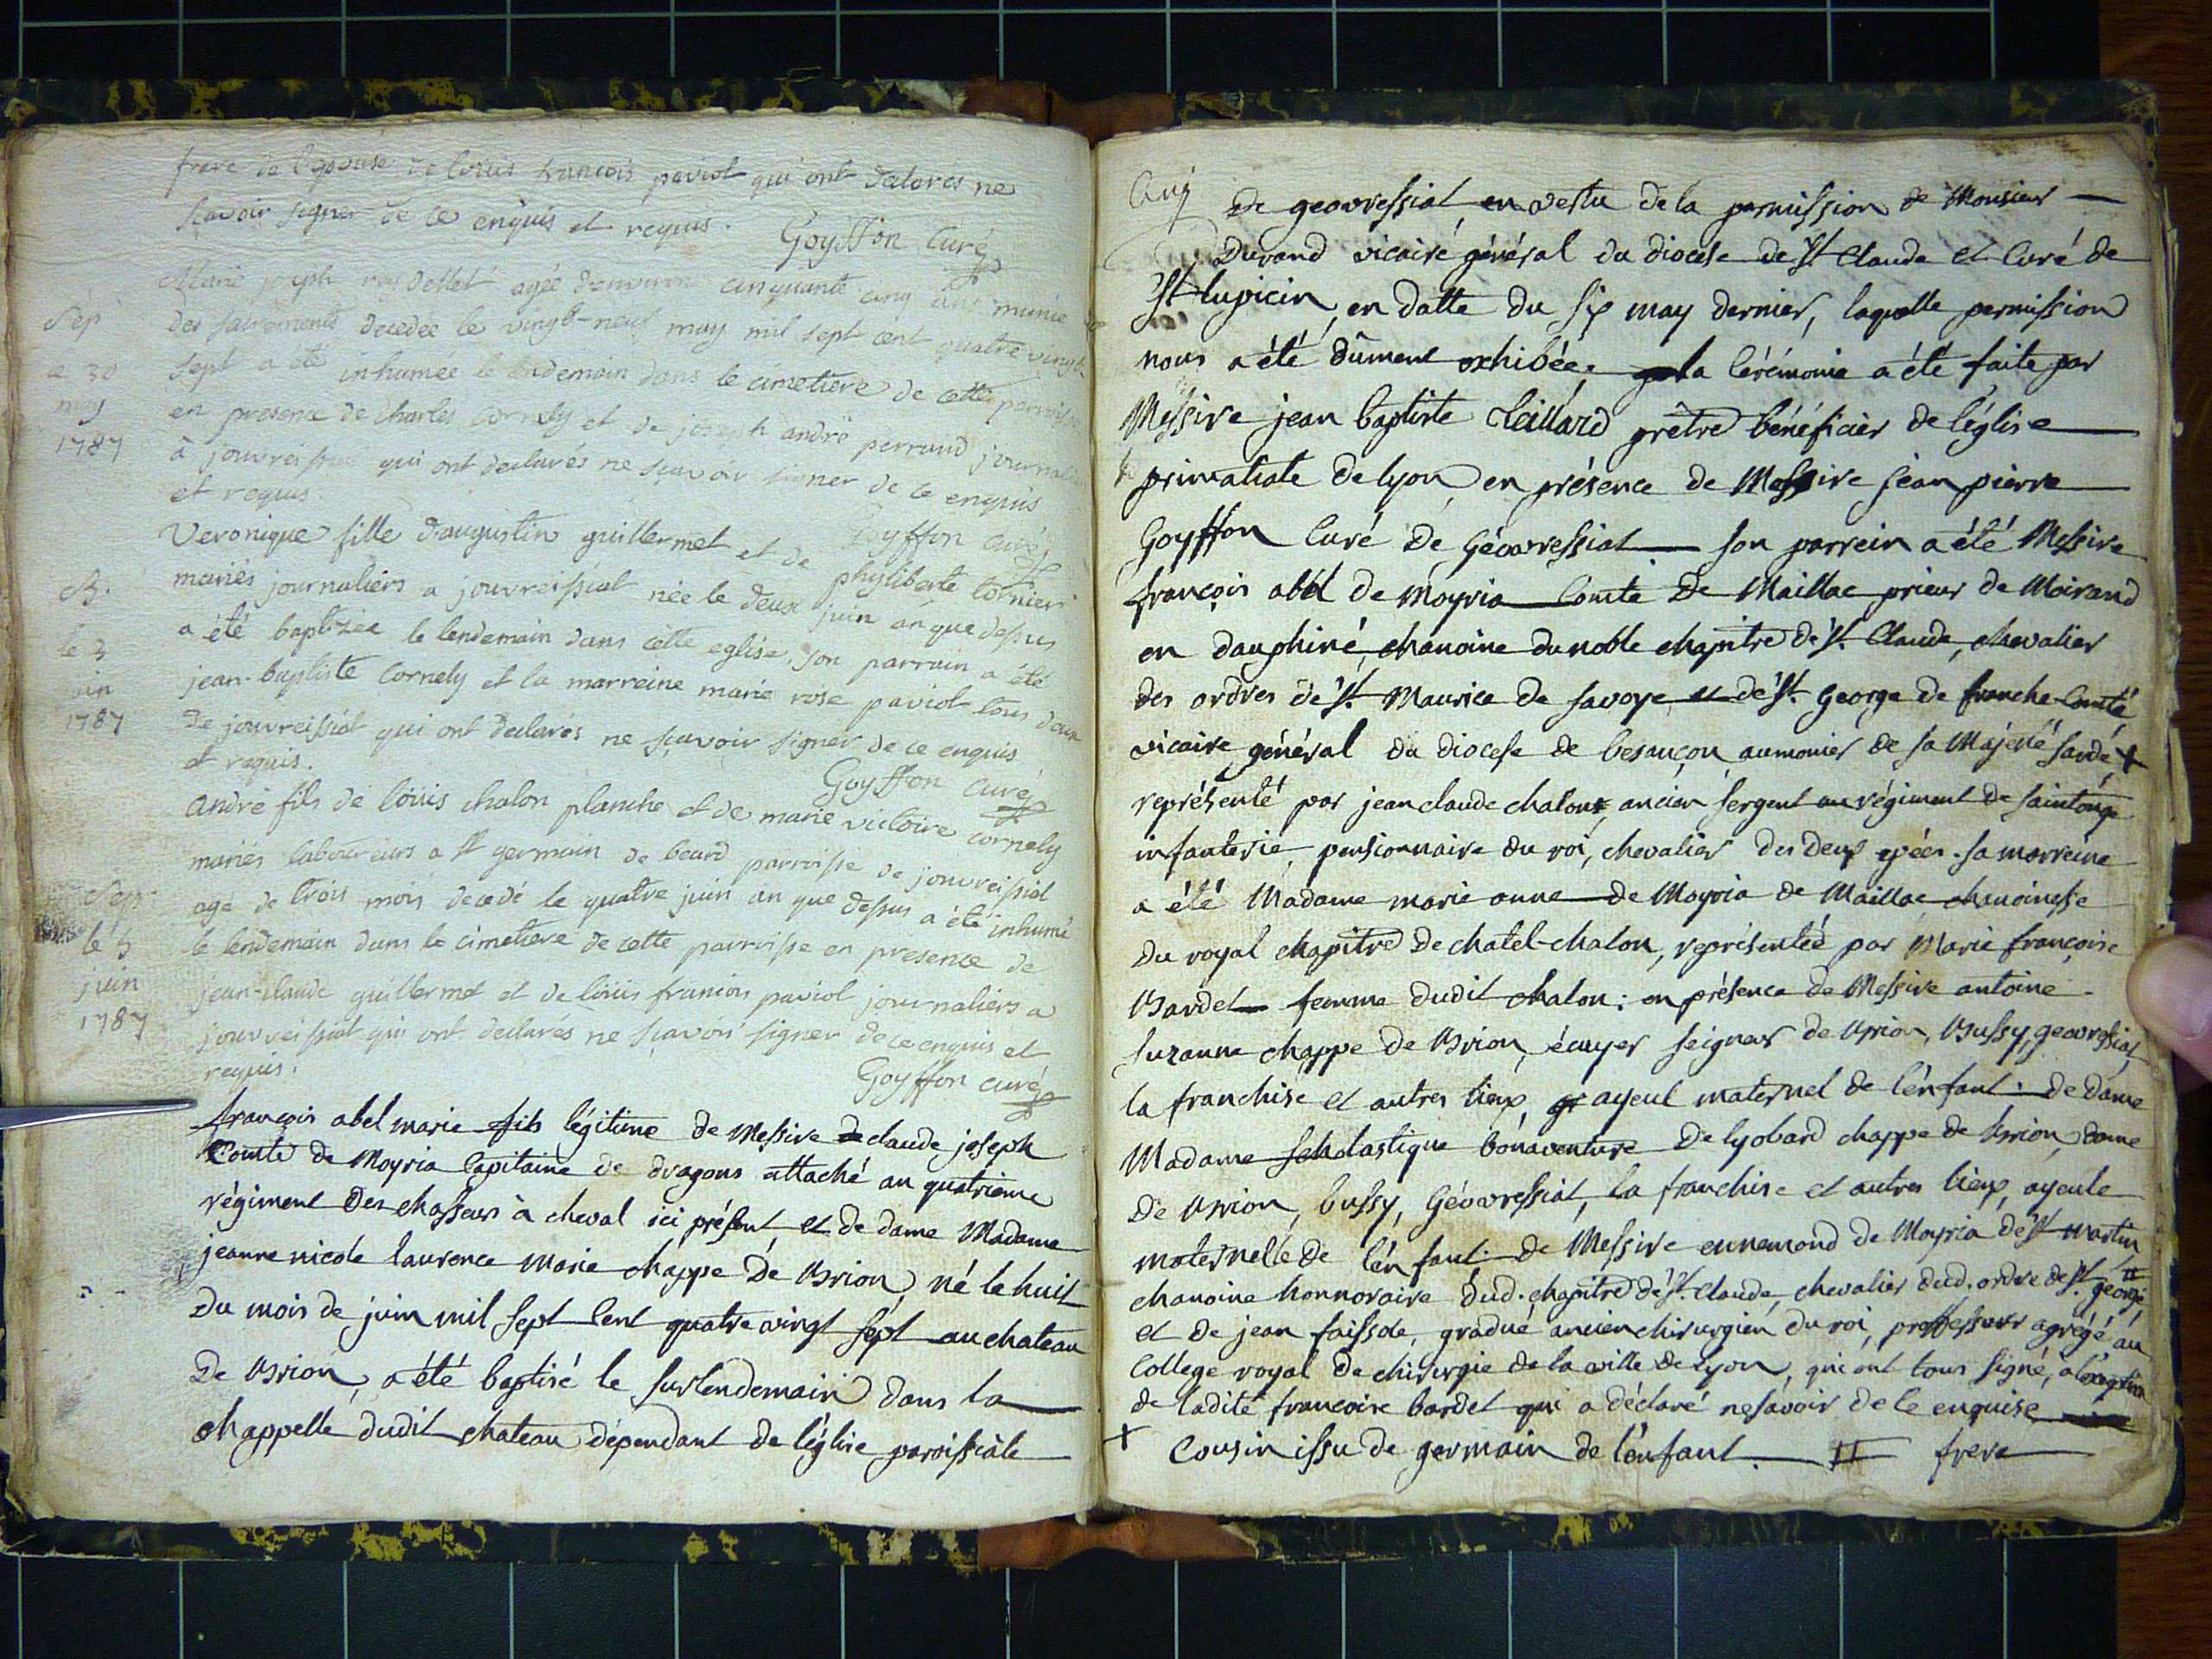 frere de l'epouse de loüis francois paviot qui ont declarés ne
scavoir signer de ce enquis et requis.
Goyffon Curé
Marie joseph roydellet agée d'environ cinquante cinq ans munie
des sacrements decedée le vingt-neuf may mil sept cent quatre vingt
Sep
le 30
may
1787
sept a été inhumée le lendemain dans le cimetiere de cette parroisse
en presence de charles cornely et de joseph andré perrand journaliers
à jouvreissiat qui ont declarés ne sçavoir signer de ce enquis
et requis.
Goyffon Curé
Veronique fille d'augustin guillermet et de phyliberte tornier
mariés journaliers a jouvreissiat née le deux juin an que dessus
B.
le 3
juin
1787
a été baptizée le lendemain dans cette eglise, son parrain a été
jean-baptiste Cornely et la marreine marie rose paviot tous deux
de jouvreissiat qui ont declarés ne sçavoir signer de ce enquis
et requis.
Goyffon Curé
André fils de loüis chalon planche et de marie victoire cornely
mariés laboureurs a st germain de beard parroisse de jouvreissiat
Sep
le 5
juin
1787
agé de trois mois decedé le quatre juin an que dessus a été inhumé
le lendemain dans le cimetiere de cette parroisse en presence de
jean-claude guillermet et de loüis francois paviot journaliers a
jouvreissiat qui ont declarés ne sçavoir signer de ce enquis et
requis.
Goyffon curé
françois abel marie fils légitime de Messire claude joseph
Comte de Moyria Capitaine de dragons attaché au quatrieme
régiment des chasseurs à cheval ici présent, et de dame Madame
jeanne nicole laurence Marie chappe de Brion, né le huit
du mois de juin mil sept cent quatre vingt sept au chateau
de Brion, a été baptisé le surlendemain dans la
chappelle dudit chateau dépendant de l'église paroissiale
de geovressiat, en vertu de la permission de Monsieur
Durand vicaire général du diocese de St Claude et Curé de
St lupicin, en datte du six may dernier, laquelle permission
nous a été dûment exhibée; la Cérémonie a été faite par
Messire jean baptiste prêtre bénéficier de l'église
primatiale de lyon, en présence de Messire jean pierre
Goyffon Curé de Géovressiat son parrein a été Messire
françois abel de Moyria Comte de Maillac prieur de Moirand
en dauphiné, chanoine du noble chapitre de St. Claude, chevalier
des ordres de St. Maurice de savoye, et de St. George de franche-Comté
vicaire général du diocese de besançon, aumonier de sa Majesté sarde +
représenté par jean claude chalon, ancien sergent au régiment de saintonge
infanterie, pensionnaire du roi, chevalier des deux epées. sa marreine
a été Madame marie anne de Moyria de Maillac chanoinesse
du royal chapitre de chatel-chalon, représentée par Marie françoise
Bardet femme dudit chalon: en présence de Messire antoine
suzanne chappe de Brion, écuyer seigneur de Brion, Bussy, geovressiat
la franchise et autres lieux, ayeul maternel de l'enfant: de dame
Madame scholastique bonaventure de lyobard chappe de Brion, dame
de Brion, bussy, Géovressiat, la franchise et autres lieux, ayeule
maternelle de l'enfant: de Messire ennemond de Moyria de St martin II
chanoine honnoraire dud. chapitre de St. Claude, chevalier dud. ordre de St. george
et de jean faissole, gradué ancien chirurgien du roi, professeur agrégé au
College royal de chirurgie de la ville de Lyon, qui ont tous signé, a l'exeption
de ladite francoise bardet qui a déclaré ne savoir de ce enquise
+ Cousin issu de germain de l'enfant. II frere